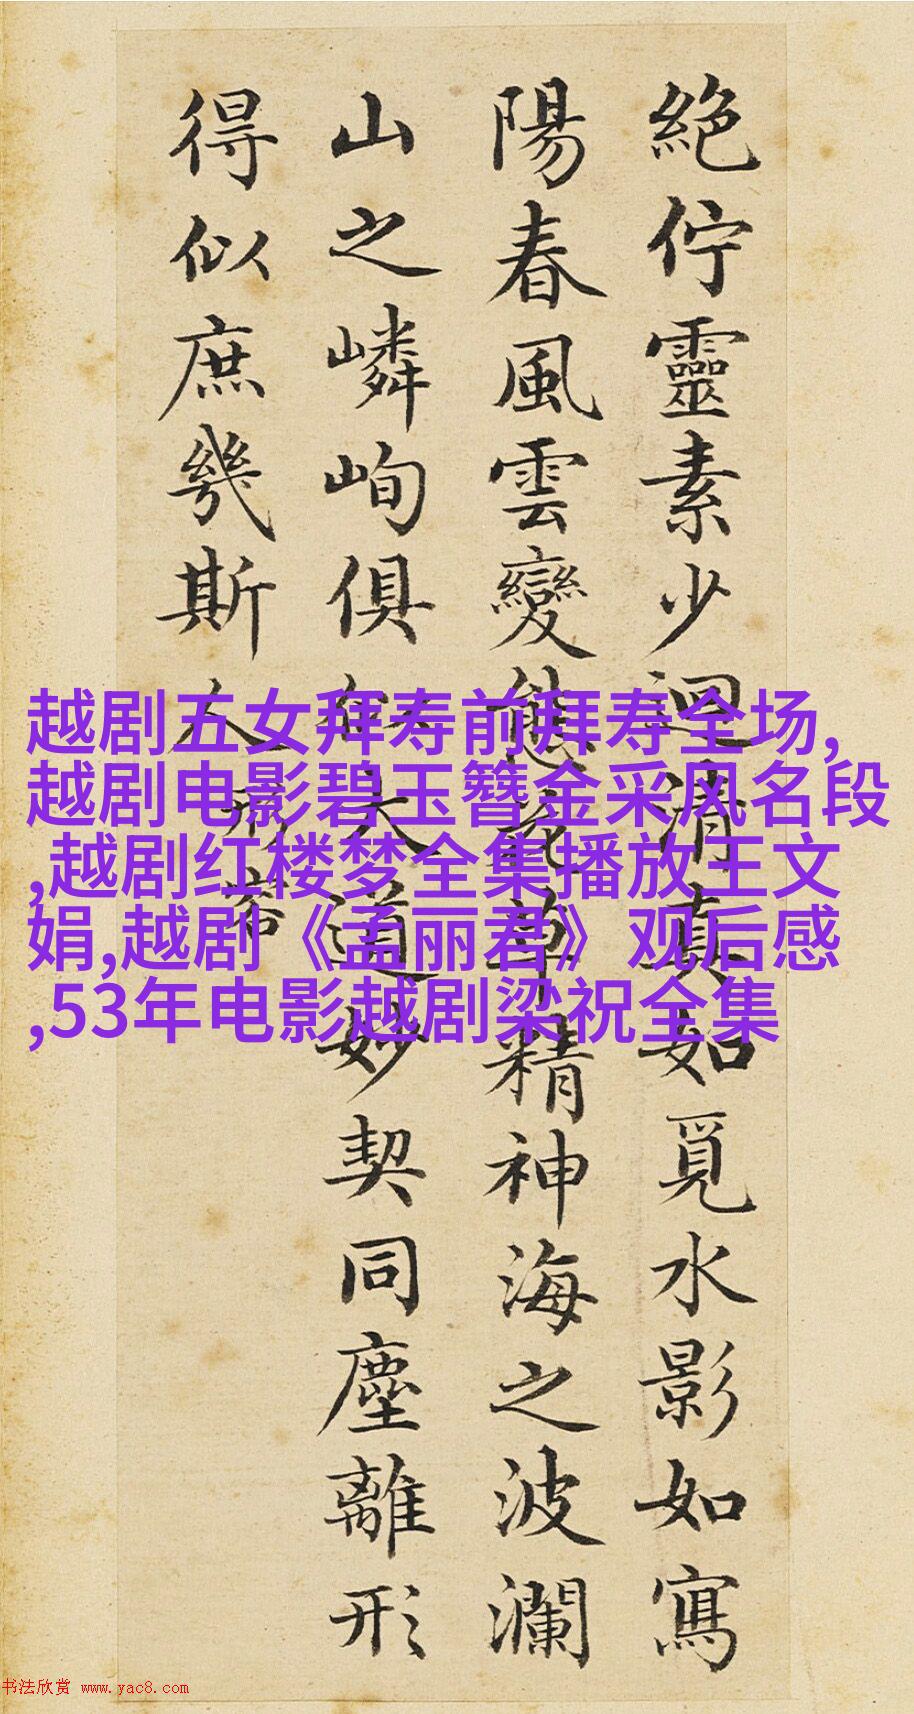 絕佇靈素少迴清真如覓水影如寫
陽春風雲變態花草精神海之波瀾
山之嶙峋俱似大道妙契同塵離形
得似庶幾斯人
形容
越剧五女拜寿前拜寿全场,
越剧电影碧玉簪金采风名段
,越剧红楼梦全集播放王文
娟,越剧《孟丽君》观后感
,53年电影越剧梁祝全集
书法欣赏 www.yac8.com